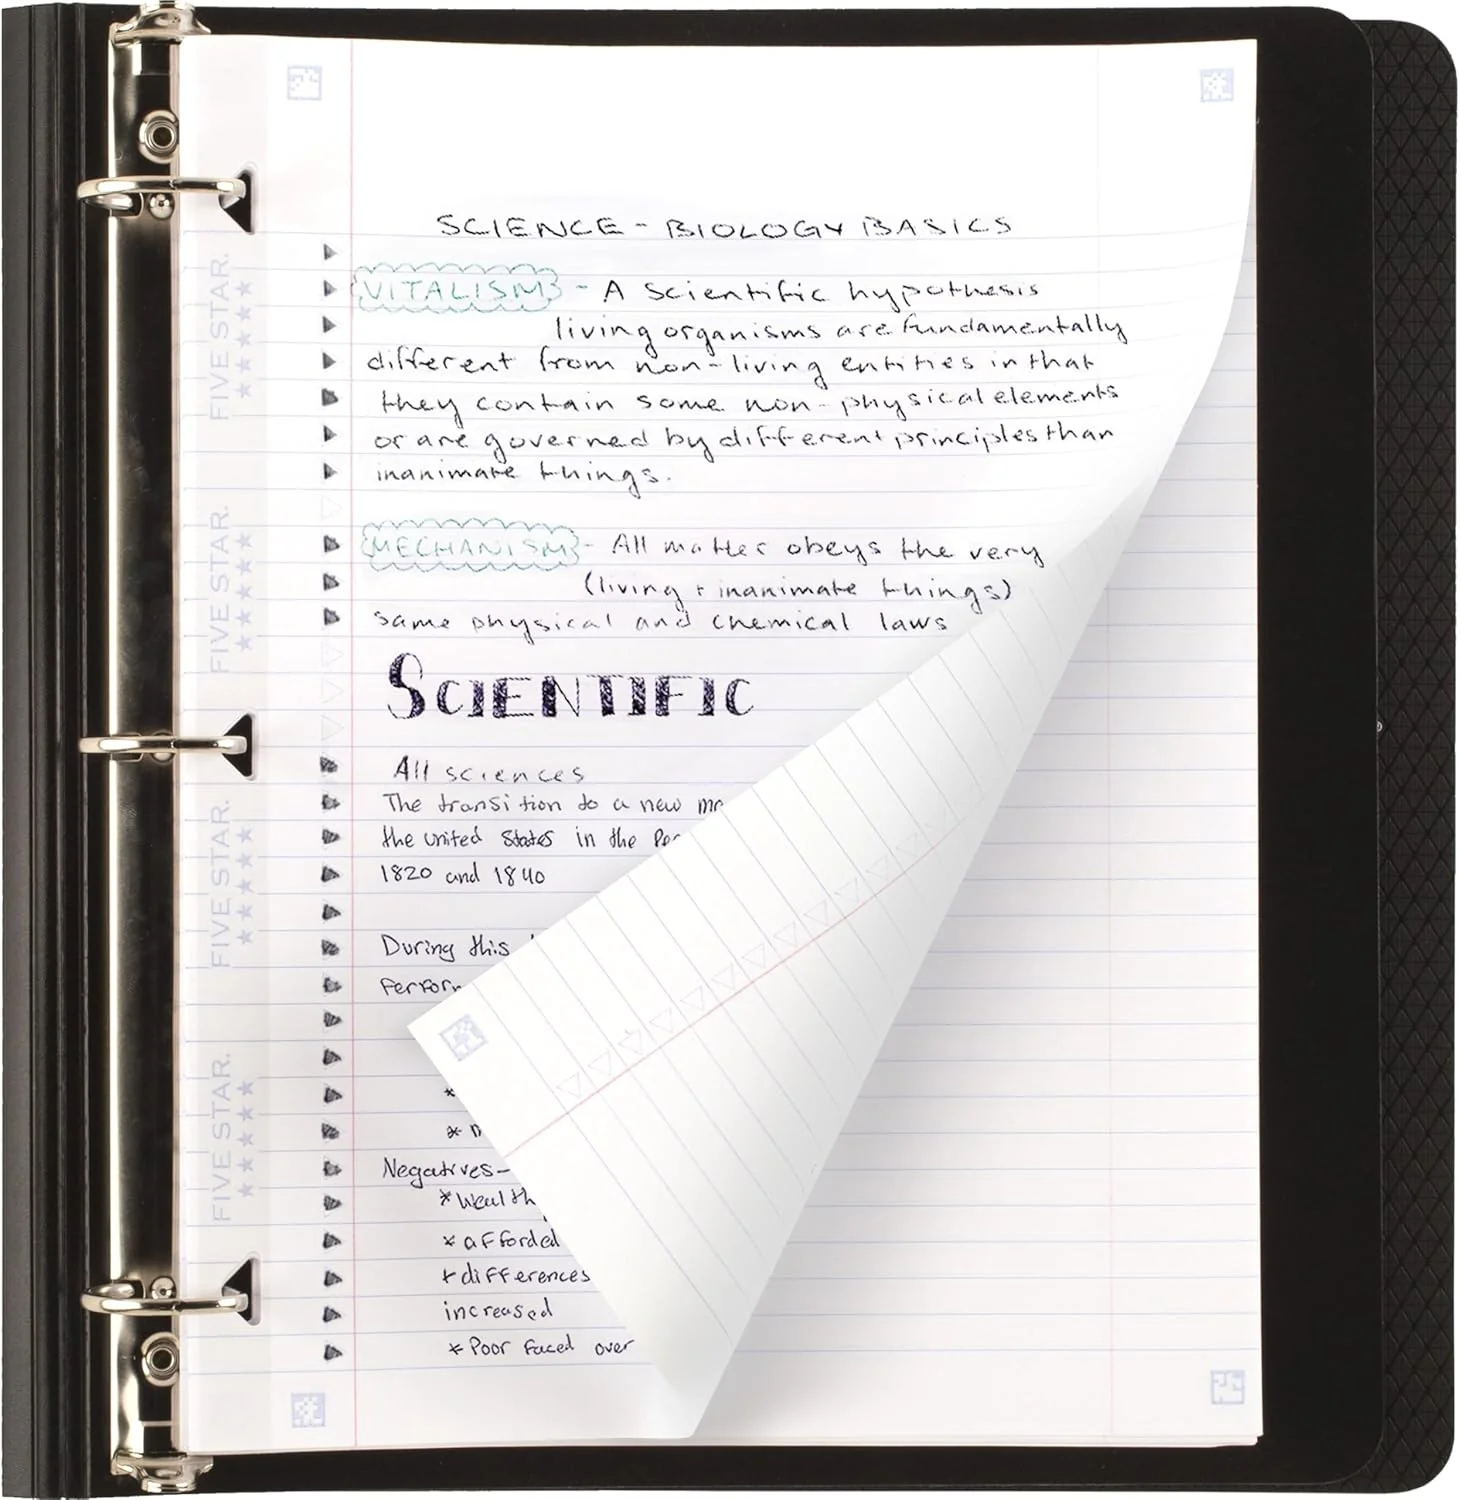 SCIENCE - BIOLOGY BASICS
VITALISM - A scientific hypothesis
living organisms are fundamentally
different from non-living entities in that
they contain some non-physical elements
or are governed by different principles than
inanimate things.
MECHANISM - All matter obeys the very
(living + inanimate things)
same physical and chemical laws
SCIENTIFIC
All sciences
The transition to a new
the united States in the
1820 and 1840
During this
Negatives-
* afforded
* differences
increased
* Poor faced over
FIVE STAR.
FIVE STAR.
FIVE STAR.
FIVE STAR.